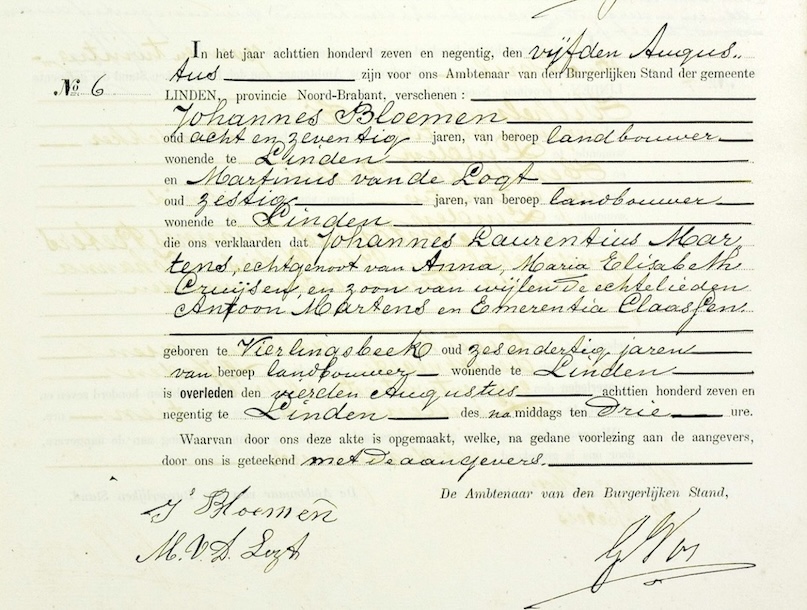 In het jaar achttien honderd zeven en negentig, den vijfden Augus„
tus zijn voor ons Ambtenaar van den Burgerlijken Stand der gemeente
No. 6
LINDEN, provincie Noord-Brabant, verschenen :
Johannes Bloemen
oud acht en zeventig jaren, van beroep landbouwer
wonende te Linden
en Martinus van de Logt
oud zestig jaren, van beroep landbouwer
wonende te Linden
die ons verklaarden dat Johannes Laurentius Mar„
tens, echtgenoot van Anna, Maria Elisabeth
Cruijsen, en zoon van wijlen de echtelieden
Antoon Martens en Emerentia Claassen.
geboren te Vierlingsbeek oud zesendertig jaren
van beroep landbouwer wonende te Linden
is overleden den vierden Augustus achttien honderd zeven en
negentig te Linden des namiddags ten Drie ure.
Waarvan door ons deze akte is opgemaakt, welke, na gedane voorlezing aan de aangevers,
door ons is geteekend met de aangevers.
De Ambtenaar van den Burgerlijken Stand,
Js Bloemen
M. V. D. Logt
G Vos